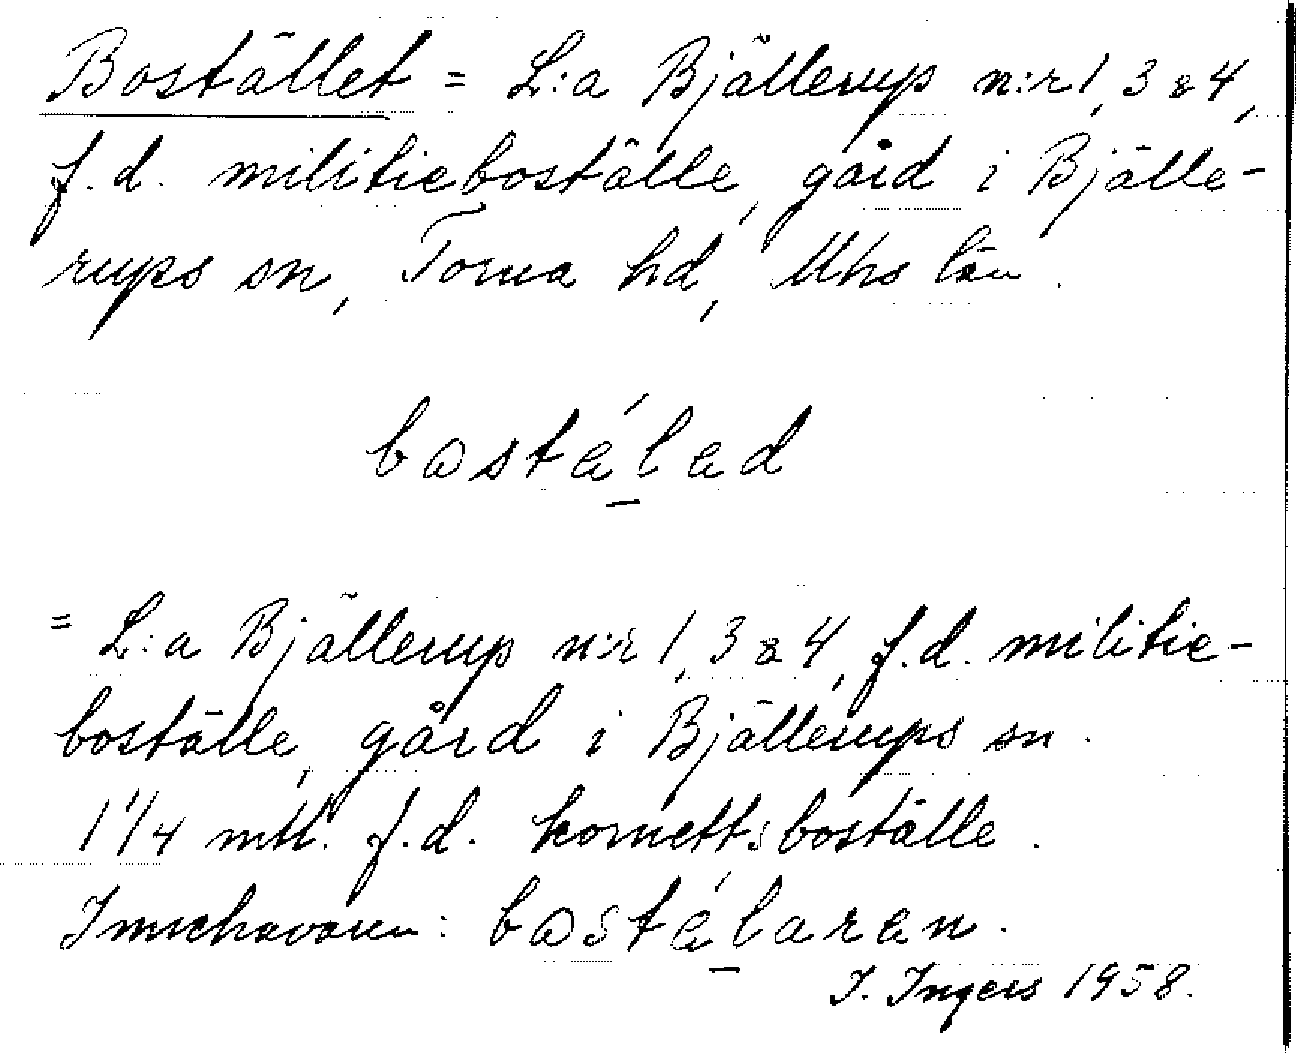 Bostället = L:a Bjällerup n:r 1, 3 & 4,
f.d. militieboställe, gård i Bjälle-
rups sn, Torna hd, Mhs län.
bastálad
= L:a Bjällerup n:r 1, 3 & 4, f.d. militie-
boställe, gård i Bjällerups sn.
1 1/4 mtl. f.d. kornettsboställe.
Innehavaren: bastálaran.
I. Ingers 1958.